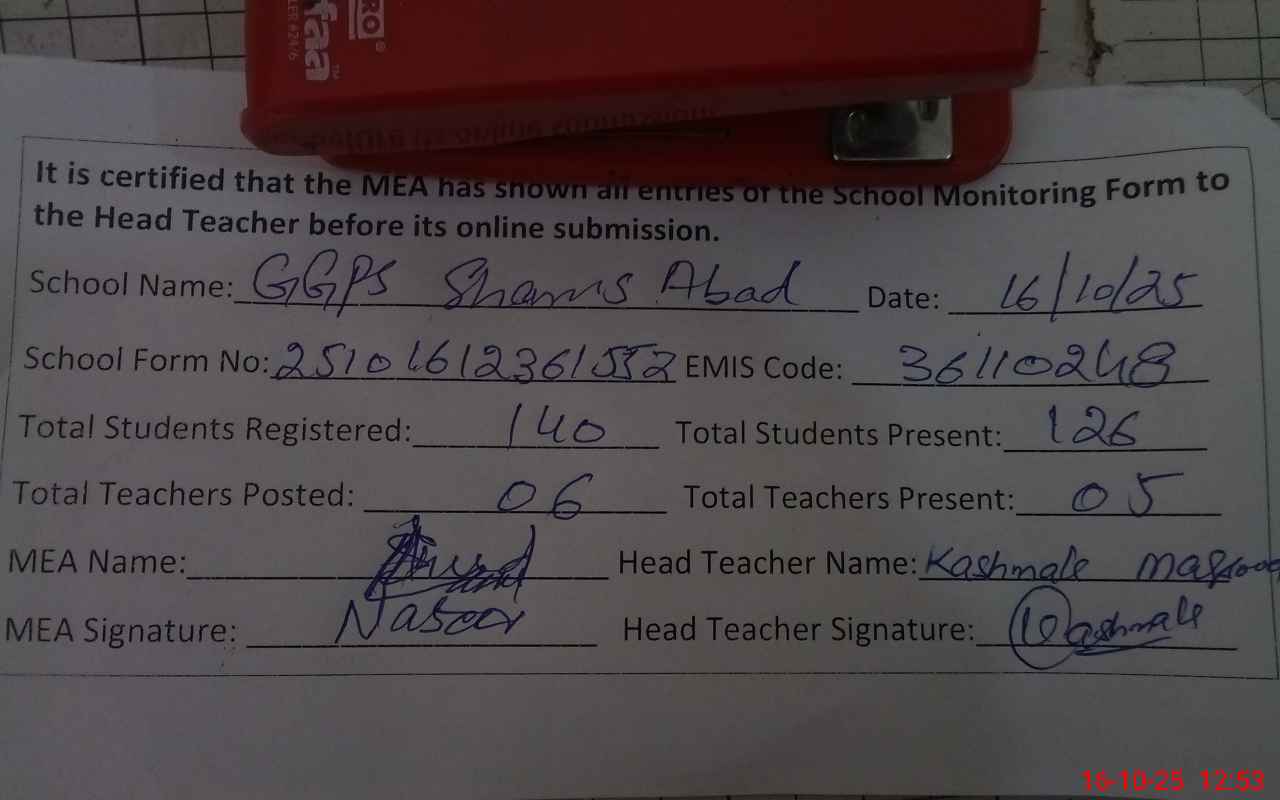 PRO
®
faa™
LER #24/6
It is certified that the MEA has shown all entries of the School Monitoring Form to
the Head Teacher before its online submission.
School Name: GGPS Shams Abad Date: 16/10/25
School Form No: 25101612361552 EMIS Code: 36110248
Total Students Registered: 140 Total Students Present: 126
Total Teachers Posted: 06 Total Teachers Present: 05
MEA Name: Head Teacher Name: Kashmale
MEA Signature: Head Teacher Signature: Kashmale
16-10-25 12:53